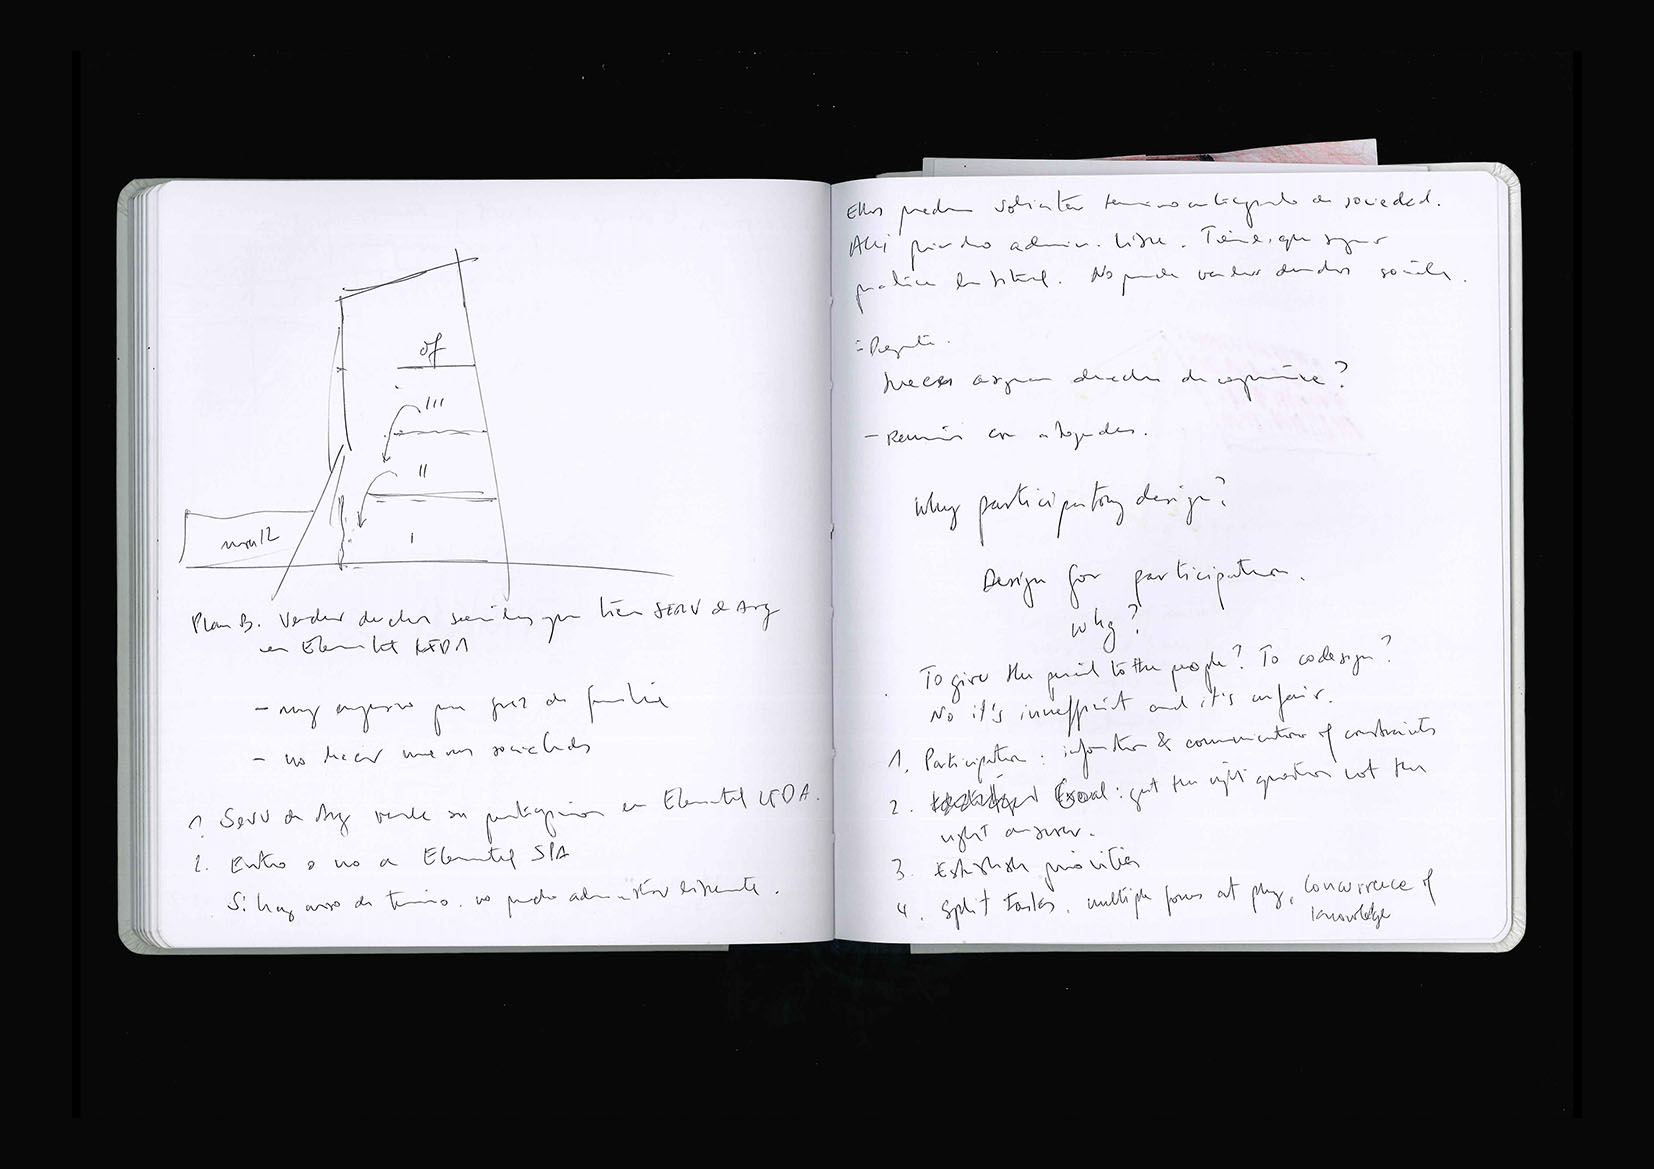 of
III
II
I
Plan B. Vender derechos sociales que tiene SERV de Arq
en Elemental LTDA
- muy engorroso por juez de familia
- no hacer nuevas sociedades
1. Serv de Arq vende su participación en Elemental LTDA.
2. Entro o no a Elemental SPA
Si hay aviso de término, no puedo administrar libremente.
Ellos pueden solicitar término anticipado de sociedad.
Ahí pierdo admin. libre. Tiene que
No puede vender derechos sociales.
derechos de
- Reunión con abogados.
Why participatory design?
Design for participation.
Why?
To give the pencil to the people? To codesign?
No it's inneffficient and it's unfair.
1. Participation : information & communication of constraints
2. Goal : get the right question not the
right answer.
3. Establish priorities
4. Split tasks, multiple forces at play, concurrence of
knowledge